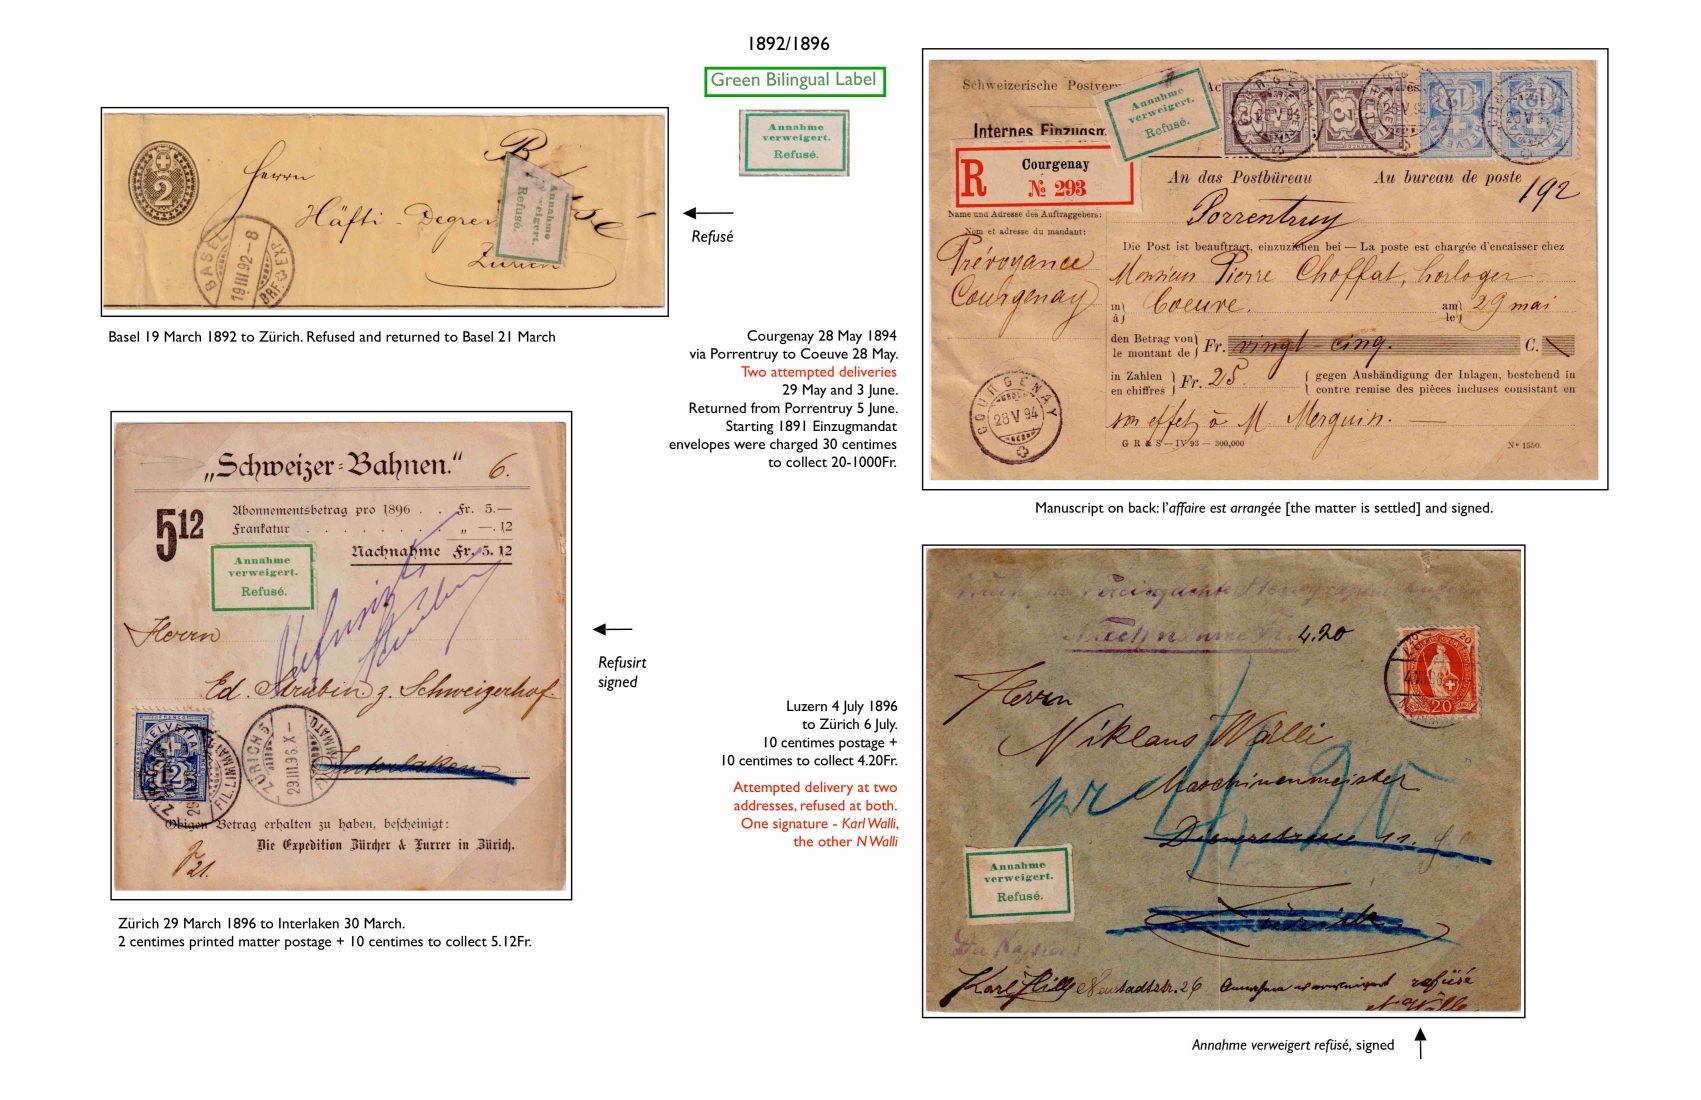 1892/1896
Green Bilingual Label
Annahme
verweigert.
Refusé.
2
Herrn
Häfti-Degren
Zürich
Annahme
verweigert.
Refusé.
BASEL
19 III 92-8
BRF. EXP.
Refusé
Basel 19 March 1892 to Zürich. Refused and returned to Basel 21 March
Schweizerische Postverw
Internes Einzugsm
Annahme
verweigert.
Refusé.
R
Courgenay
№ 293
An das Postbüreau
Au bureau de poste
192
Porrentruy
Name und Adresse des Auftraggebers:
Nom et adresse du mandant:
Prévoyance
Courgenay
Die Post ist beauftragt, einzuziehen bei — La poste est chargée d'encaisser chez
Monsieur Pierre Choffat, horloger
in
à
Coeuve.
am
le
29 mai
den Betrag von
le montant de
Fr. vingt-cinq. C.
in Zahlen
en chiffres
Fr. 25.
gegen Aushändigung der Inlagen, bestehend in
contre remise des pièces incluses consistant en
son effet à M Merguin. —
G R & S—IV 93 — 300,000
Nº 1550.
COURGENAY
28 V 94
Courgenay 28 May 1894
via Porrentruy to Coeuve 28 May.
Two attempted deliveries
29 May and 3 June.
Returned from Porrentruy 5 June.
Starting 1891 Einzugmandat
envelopes were charged 30 centimes
to collect 20-1000Fr.
Manuscript on back: l'affaire est arrangée [the matter is settled] and signed.
„Schweizer-Bahnen."
6.
5 12
Abonnementsbetrag pro 1896 . . Fr. 5.—
Frankatur . . . . . . . „ —.12
Nachnahme Fr. 5. 12
Annahme
verweigert.
Refusé.
Refusirt
Herrn
Ed. Strübin z. Schweizerhof
Interlaken
HELVETIA
12
ZÜRICH 5
29.III.96.X-
FIL. LIMMATQ.
Obigen Betrag erhalten zu haben, bescheinigt:
Die Expedition Zürcher & Furrer in Zürich.
Refusirt
signed
Zürich 29 March 1896 to Interlaken 30 March.
2 centimes printed matter postage + 10 centimes to collect 5.12Fr.
Luzern 4 July 1896
to Zürich 6 July.
10 centimes postage +
10 centimes to collect 4.20Fr.
Attempted delivery at two
addresses, refused at both.
One signature - Karl Walli,
the other N Walli
Nachnahme Fr. 4.20
Herrn
Niklaus Walli
Maschinenmeister
Dienerstrasse 11.
Zürich
20
Annahme
verweigert.
Refusé.
Neustadtstr. 26 Annahme verweigert refüsé
N Walli
Annahme verweigert refüsé, signed